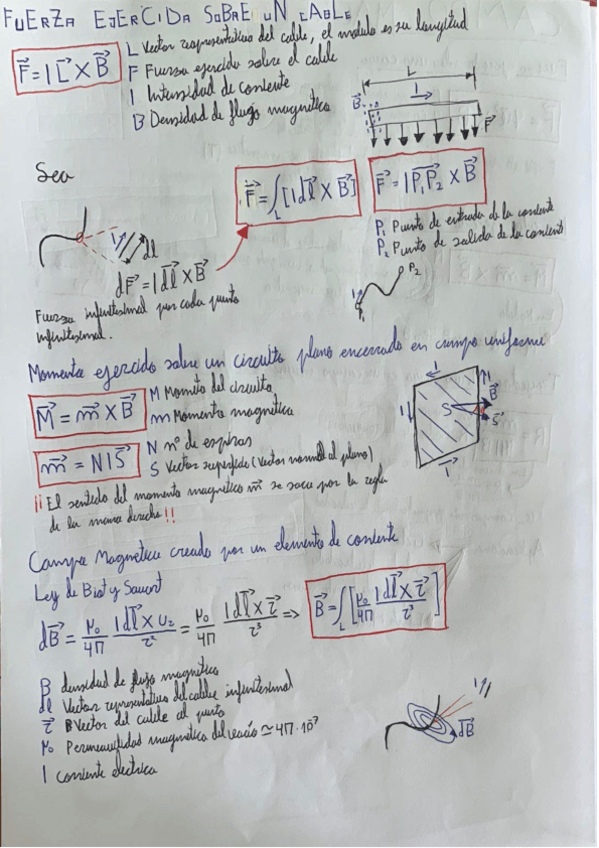 FUERZA EJERCIDA SOBRE UN CABLE
F = I L X B
L Vector representativo del cable, el modulo es su longitud
F Fuerza ejercida sobre el cable
I Intensidad de corriente
B Densidad de flujo magnético
L
I
B
F
Sea
I
dl
dF = I dl X B
Fuerza infinitesimal por cada punto
infinitesimal.
F = ∫L [I dl X B]
F = I P₁P₂ X B
P₁ Punto de entrada de la corriente
P₂ Punto de salida de la corriente
P₂
I
P₁
Momento ejercido sobre un circuito plano encerrado en campo uniforme
M = m X B
M Momento del circuito
m Momento magnético
m = N I S
N nº de espiras
S Vector superficie (Vector normal al plano)
¡¡El sentido del momento magnético m se saca por la regla
de la mano derecha!!
I
I
I
I
S
B
S
Campo Magnético creado por un elemento de corriente
Ley de Biot y Savart
dB = μ₀/4π I dl X u_r/r² = μ₀/4π I dl X r/r³ => B = ∫L [μ₀/4π I dl X r/r³]
B densidad de flujo magnético
dl Vector representativo del cable infinitesimal
r Vector del cable al punto
μ₀ Permeabilidad magnética del vacío ≃ 4π·10⁻⁷
I corriente eléctrica
I
dB